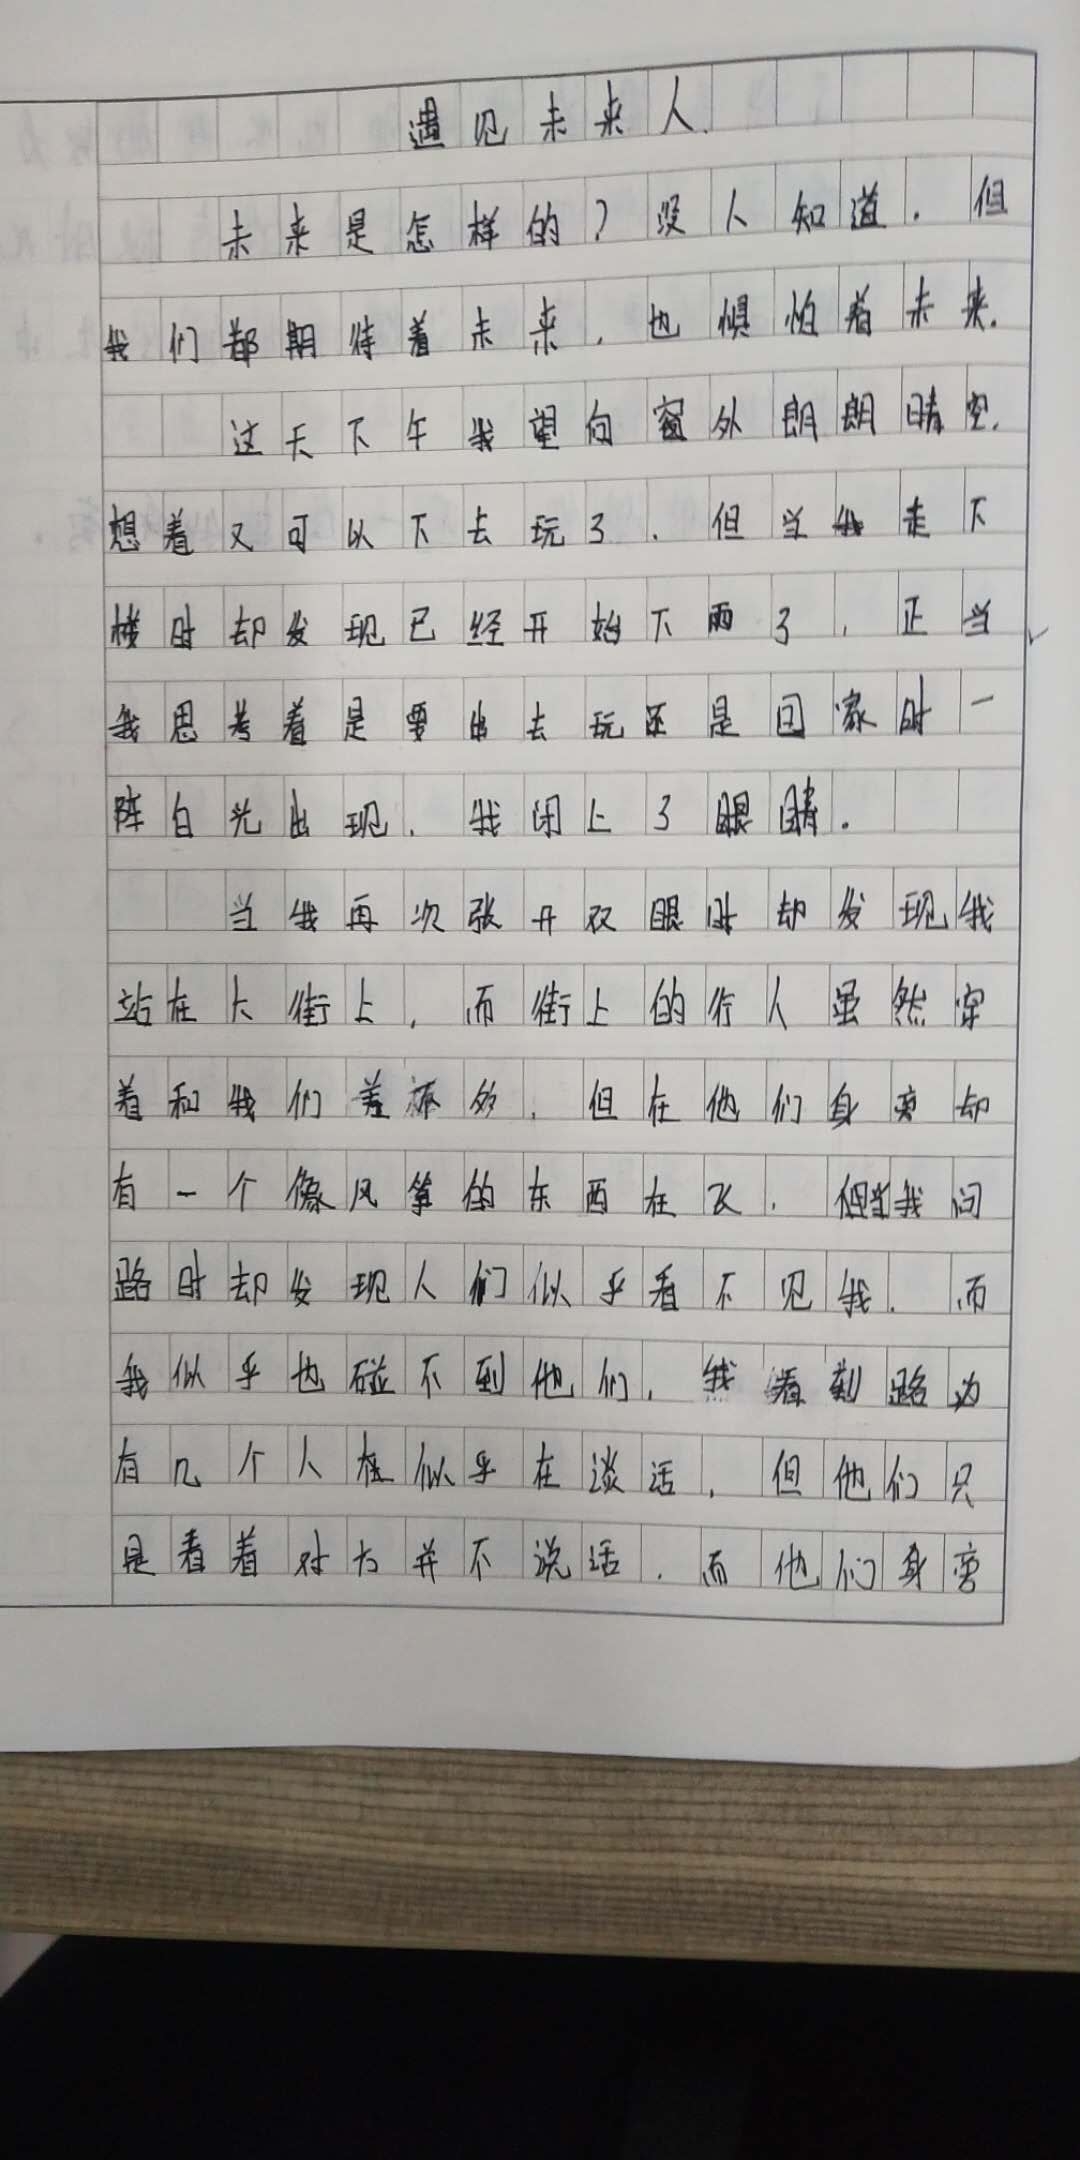 遇见未来人.
未来是怎样的？没人知道.但
我们都期待着未来.也惧怕着未来.
这天下午我望向窗外朗朗晴空.
想着又可以下去玩了.但当我走下
楼时却发现已经开始下雨了,正当
我思考着是要出去玩还是回家时一
阵白光出现.我闭上了眼睛.
当我再次张开双眼时却发现我
站在大街上,而街上的行人虽然穿
着和我们差不多.但在他们身旁却
有一个像风筝的东西在飞.但当我问
路时却发现人们似乎看不见我.而
我似乎也碰不到他们.我看到路边
有几个人在似乎在谈话,但他们只
是看着对方并不说话.而他们身旁